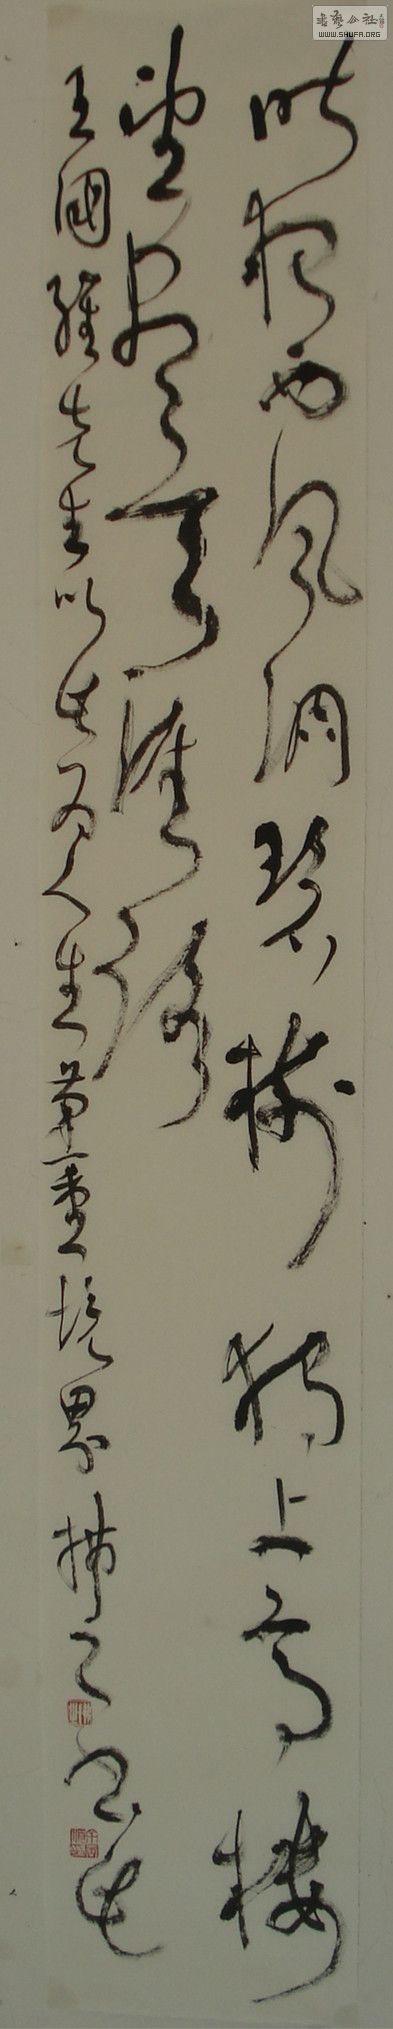 書藝公社
WWW.SHUFA.ORG
昨夜西風凋碧樹獨上高樓
望盡天涯路
王國維先生以此為人生第一重境界